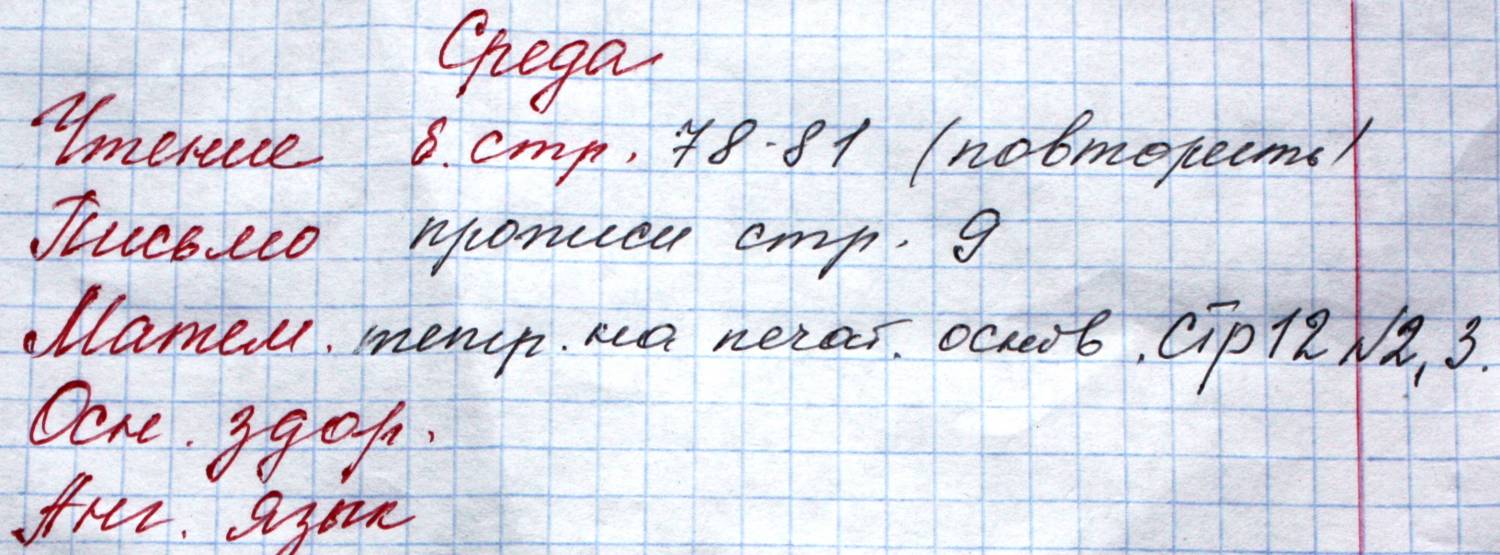 Среда
Чтение б. стр. 78-81 (повторить)
Письмо прописи стр. 9
Матем. тетр. на печат. основ. Стр 12 №2, 3.
Осн. здор.
Анг. язык